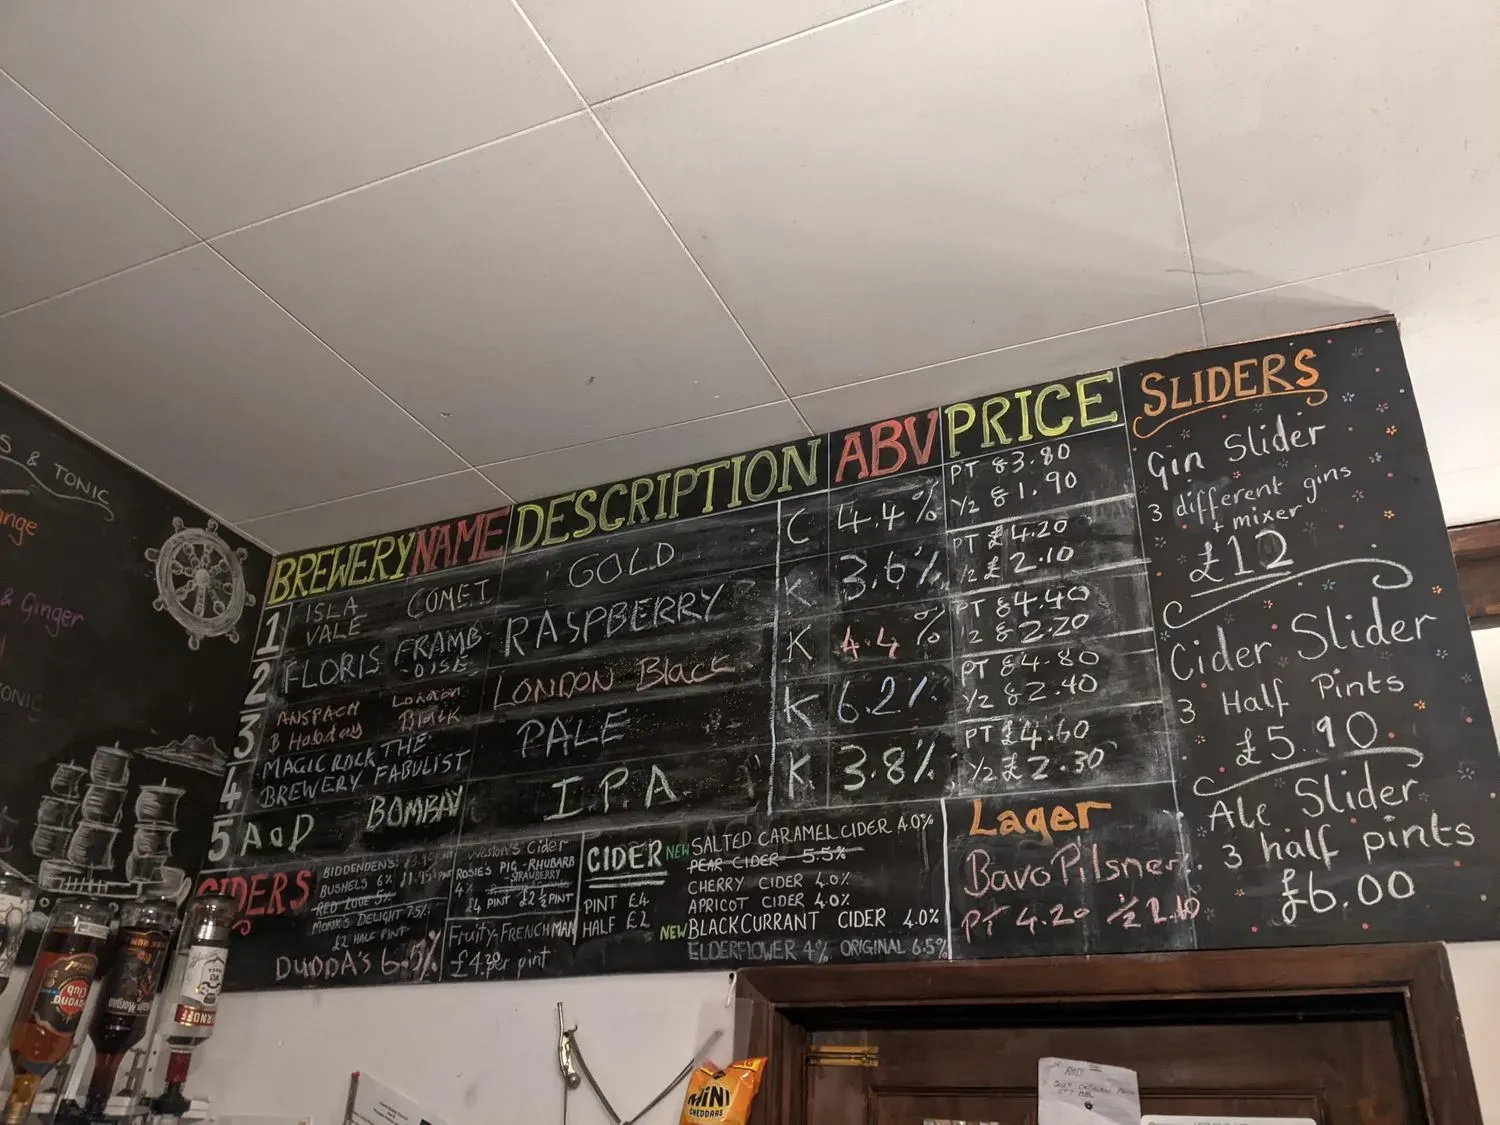 S & TONIC
nge
& Ginger
ONIC
BREWERY NAME DESCRIPTION ABV PRICE
1 ISLA VALE COMET GOLD C 4.4% PT £3.80
1/2 £1.90
2 FLORIS FRAMB-OISE RASPBERRY K 3.6% PT £4.20
1/2 £2.10
3 ANSPACH & Hobday London Black LONDON Black K 4.4% PT £4.40
1/2 £2.20
4 MAGIC ROCK BREWERY THE FABULIST PALE K 6.2% PT £4.80
1/2 £2.40
5 A o D BOMBAY I.P.A. K 3.8% PT £4.60
1/2 £2.30
CIDERS
BIDDENDEN'S:
BUSHELS 6%
RED LOVE 5%
MONK'S DELIGHT 7.5%
£2 HALF PINT
DUDDA'S
Weston's Cider
ROSIE'S PIG - RHUBARB
4% STRAWBERRY
£4 PINT £2 1/2 PINT
Fruity-FRENCHMAN
per pint
CIDER
PINT £4
HALF £2
NEW SALTED CARAMEL CIDER 4.0%
PEAR CIDER 5.5%
CHERRY CIDER 4.0%
APRICOT CIDER 4.0%
NEW BLACKCURRANT CIDER 4.0%
ELDERFLOWER 4% ORIGINAL 6.5%
Lager
Bavo Pilsner
PT 4.20 1/2 2.10
SLIDERS
Gin Slider
3 different gins
+ mixer
£12
Cider Slider
3 Half Pints
£5.90
Ale Slider
3 half pints
£6.00
Havana
Club
Captain Morgan
SMIRNOFF
MINI
CHEDDARS